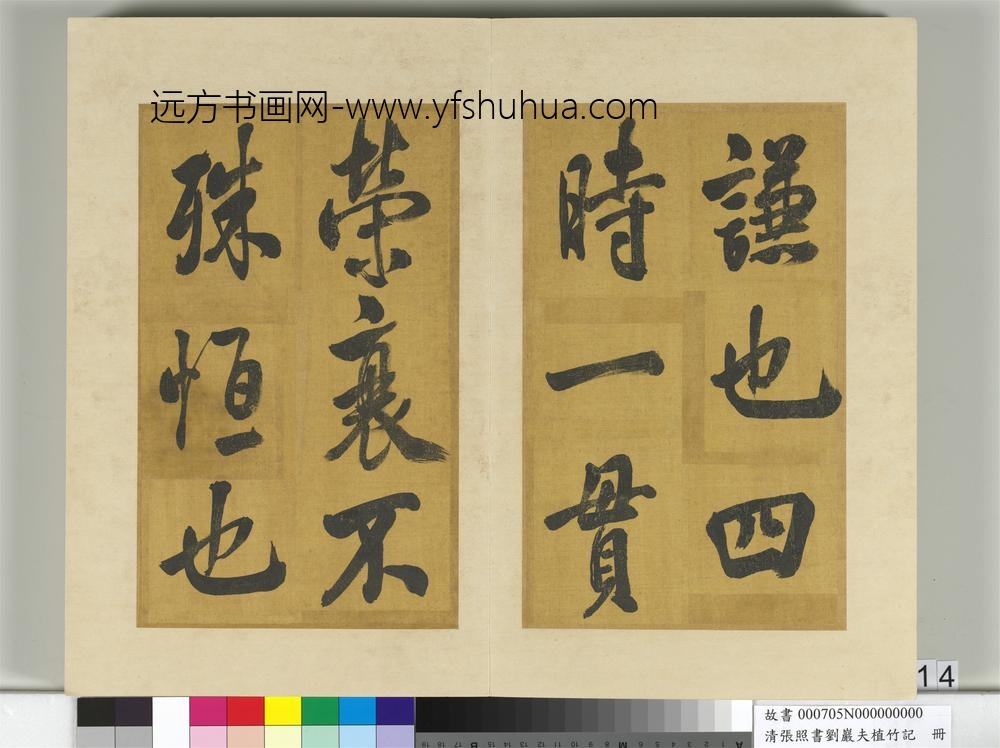 远方书画网-www.yfshuhua.com
謙也四
時一貫
榮衰不
殊恒也
14
故書 000705N000000000
清張照書劉巖夫植竹記 冊